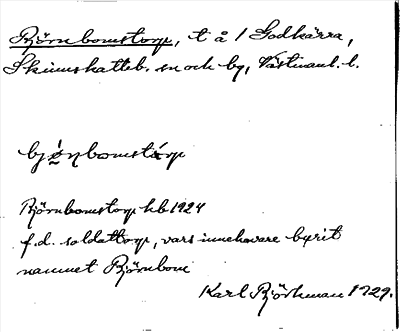 Björnbomstorp, t å 1 Godkärra,
Skinnskatteb. sn och by, Västmanl. l.
bjǿṇbomstǻrp
Björnbomstorp kb 1924
f.d. soldattorp, vars innehavare burit
namnet Björnbom
Karl Björkman 1929.